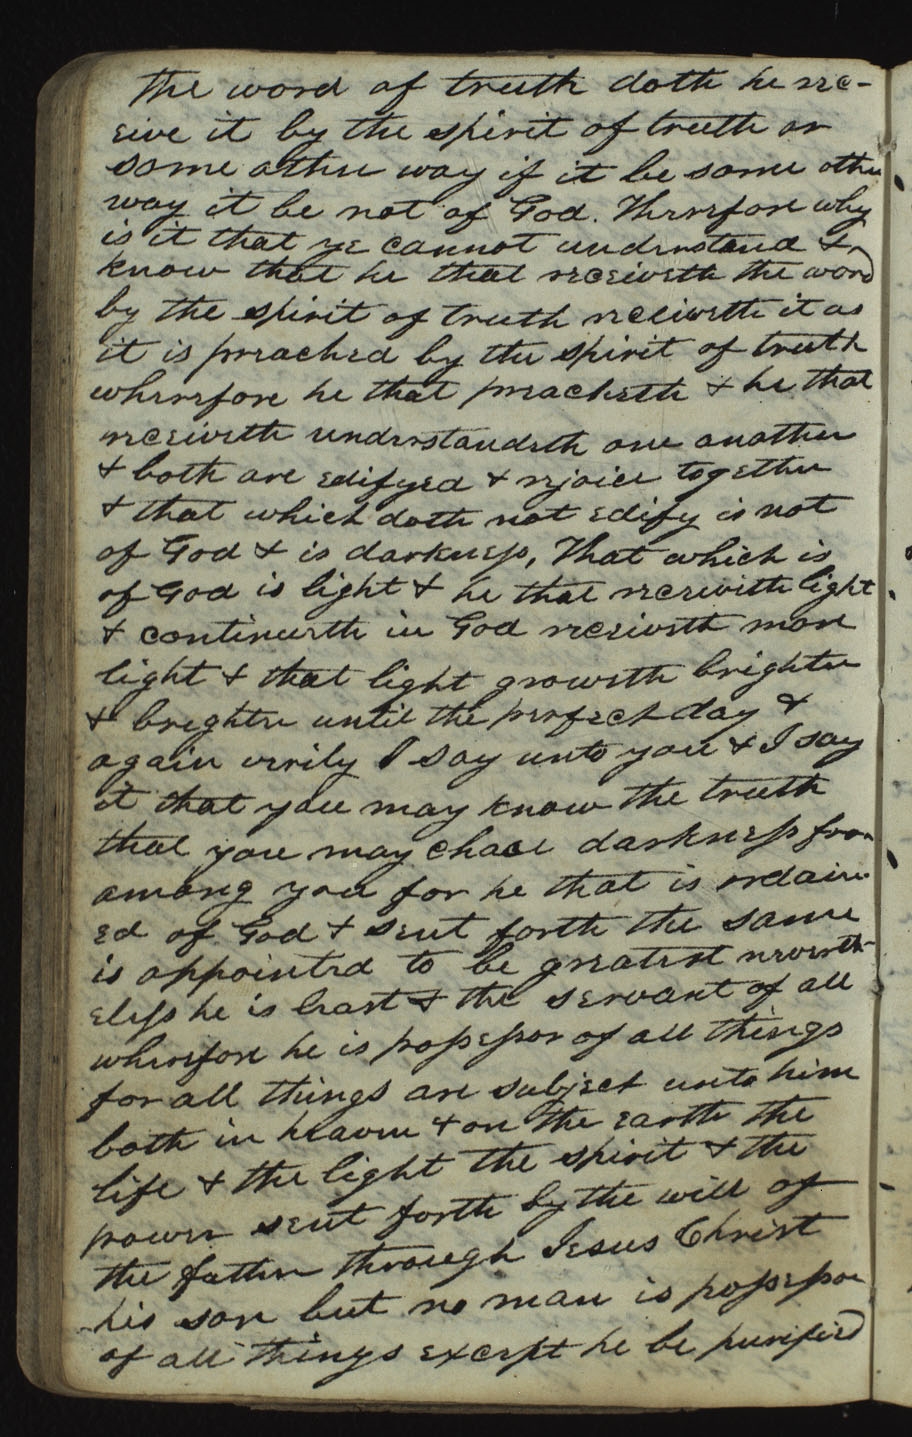 the word of truth doth he rec-
eive it by the spirit of truth or
some other way if it be some other
way it be not of God. Therefore why
is it that ye cannot understand &
know that he that receiveth the word
by the spirit of truth receiveth it as
it is preached by the spirit of truth
wherefore he that preacheth & he that
receiveth understandeth one another
& both are edifyed & rejoice together
& that which doth not edify is not
of God & is darkness, That which is
of God is light & he that receiveth light
& continueth in God receiveth more
light & that light groweth brighter
& brighter until the perfect day &
again verily I say unto you & I say
it that you may know the truth
that you may chase darkness from
among you for he that is ordain-
ed of God & sent forth the same
is appointed to be greatest neverth-
eless he is least & the servant of all
wherefore he is possessor of all things
for all things are subject unto him
both in heaven & on the earth the
life & the light the spirit & the
power sent forth by the will of
the father through Jesus Christ
his son but no man is possessor
of all things except he be purified